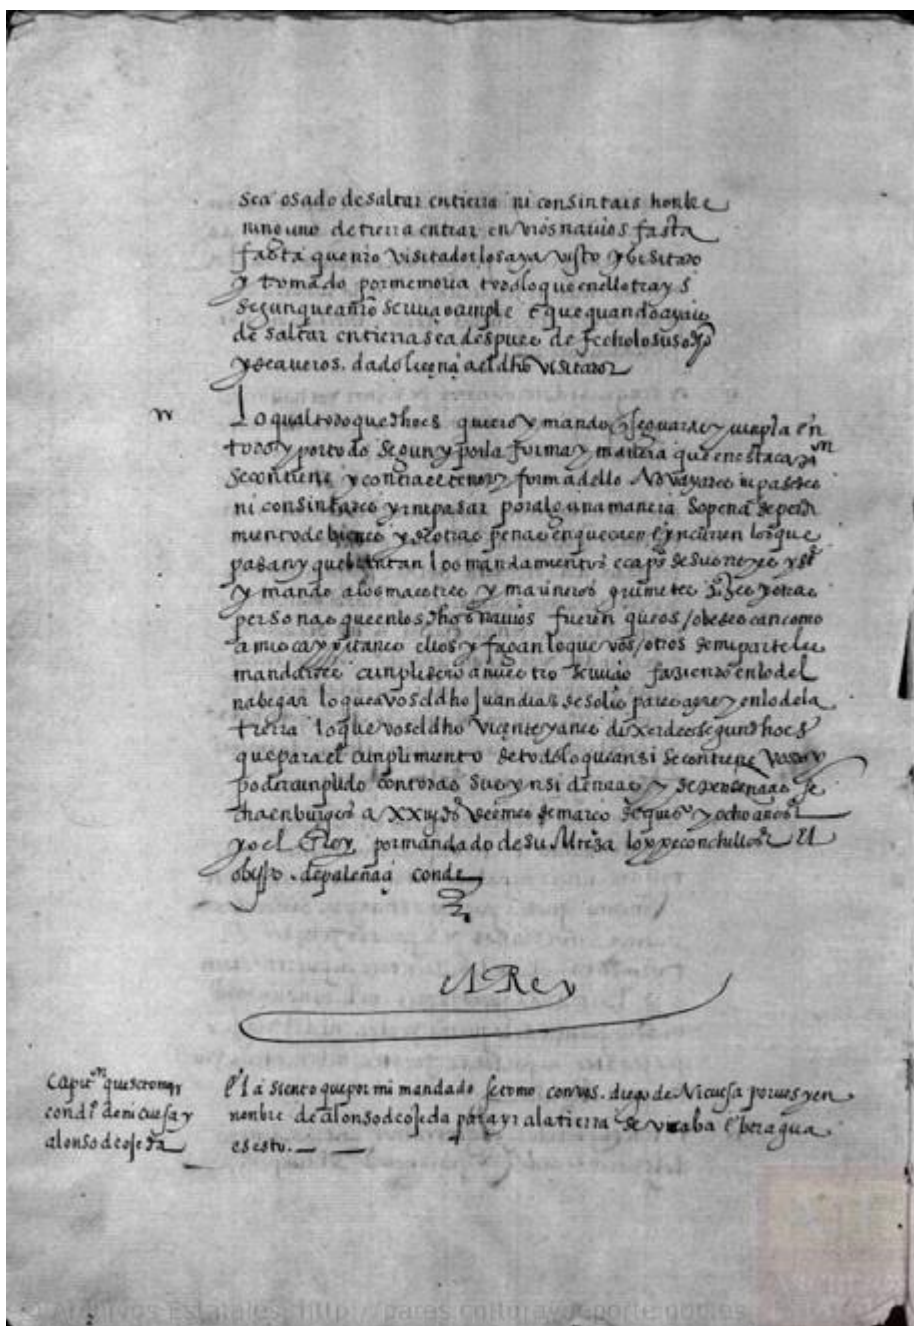 sea osado de saltar en tierra ni consintais honbre
ninguno de tierra entrar en vros navios fasta
fasta que nro visitador los aya visto y bisitado
y tomado por memoria todo lo que en ello trays
segun que a nro servicio cumple e que quando ayais
de saltar en tierra sea despues de fecho lo susodho
y de averos dado licencia el dho visitador
Lo qual todo que dho es quiero y mando se guarde y cumpla en
todo y por todo segun y por la forma y manera que en esta capitulacion
se contiene y contra el tenor y forma dello no vayades ni pasedes
ni consintades yr ni pasar por alguna manera so pena de perdi
miento de bienes y de otras penas en que caen e yncurren los que
pasan y quebrantan los mandamientos
y mando a los maestres y marineros grumetes pajes y otras
personas que en los dhos navios fueren que os obedescan como
a mis capitanes ellos y fagan lo que vosotros de mi parte les
mandardes cunplidero a nuestro servicio faziendo en lo del
nabegar lo que a vos el dho Juan dias de solis paresciere y en lo de la
tierra lo que vos el dho vicente yanes dixerdes segun dho es
que para el cunplimiento de todo lo que ansi se contiene vos doy
poder cunplido con todas sus ynsidencias y dependencias fe
cha en burgos a XXIII dias del mes de março de quis y ocho años
yo el Rey por mandado de su Alteza lope conchillos El
obispo de palencia conde
el Rey
Capitn que se tomo
con dº de nicuesa y
alonso de ojeda
El asiento que por mi mandado se tomo con vos diego de Nicuesa por vos y en
nonbre de alonso de ojeda para yr a la tierra de uraba e beragua
es esto.
© Archivos Estatales, http://pares.cultura